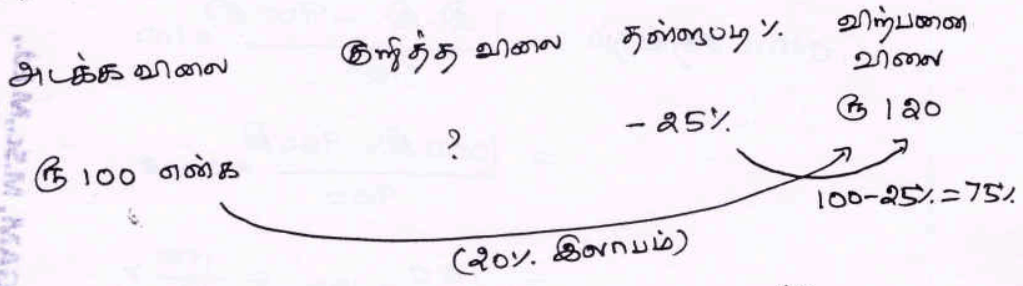 அடக்க விலை குறித்த விலை தள்ளுபடி % விற்பனை விலை
ரூ 100 என்க ? - 25% ரூ 120
100-25% = 75%
(20% இலாபம்)